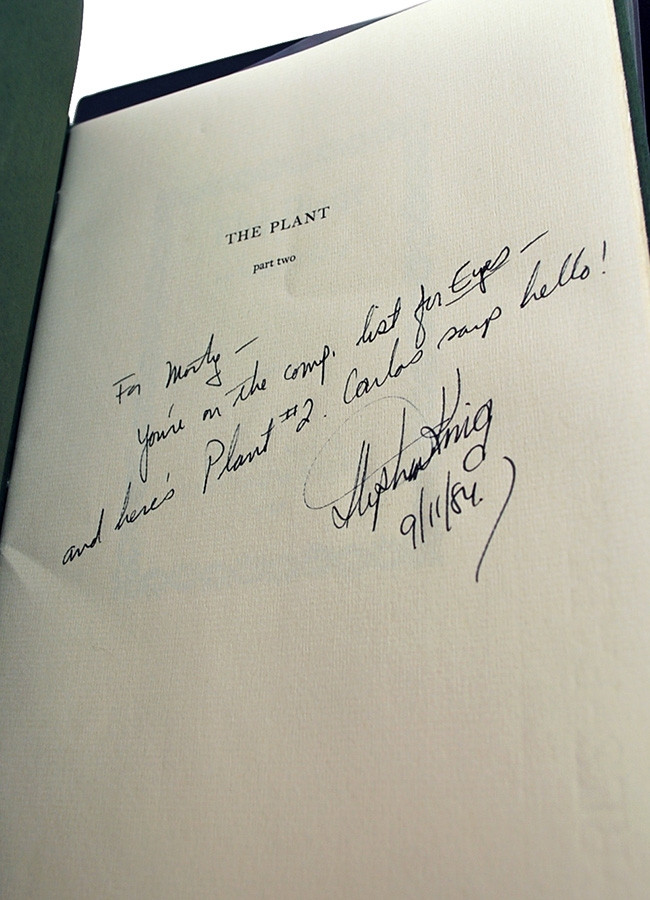 THE PLANT
part two
For Morty –
You're on the comp. list for Eyes –
and here's Plant #2. Carlos says hello!
Stephen King
9/11/84.